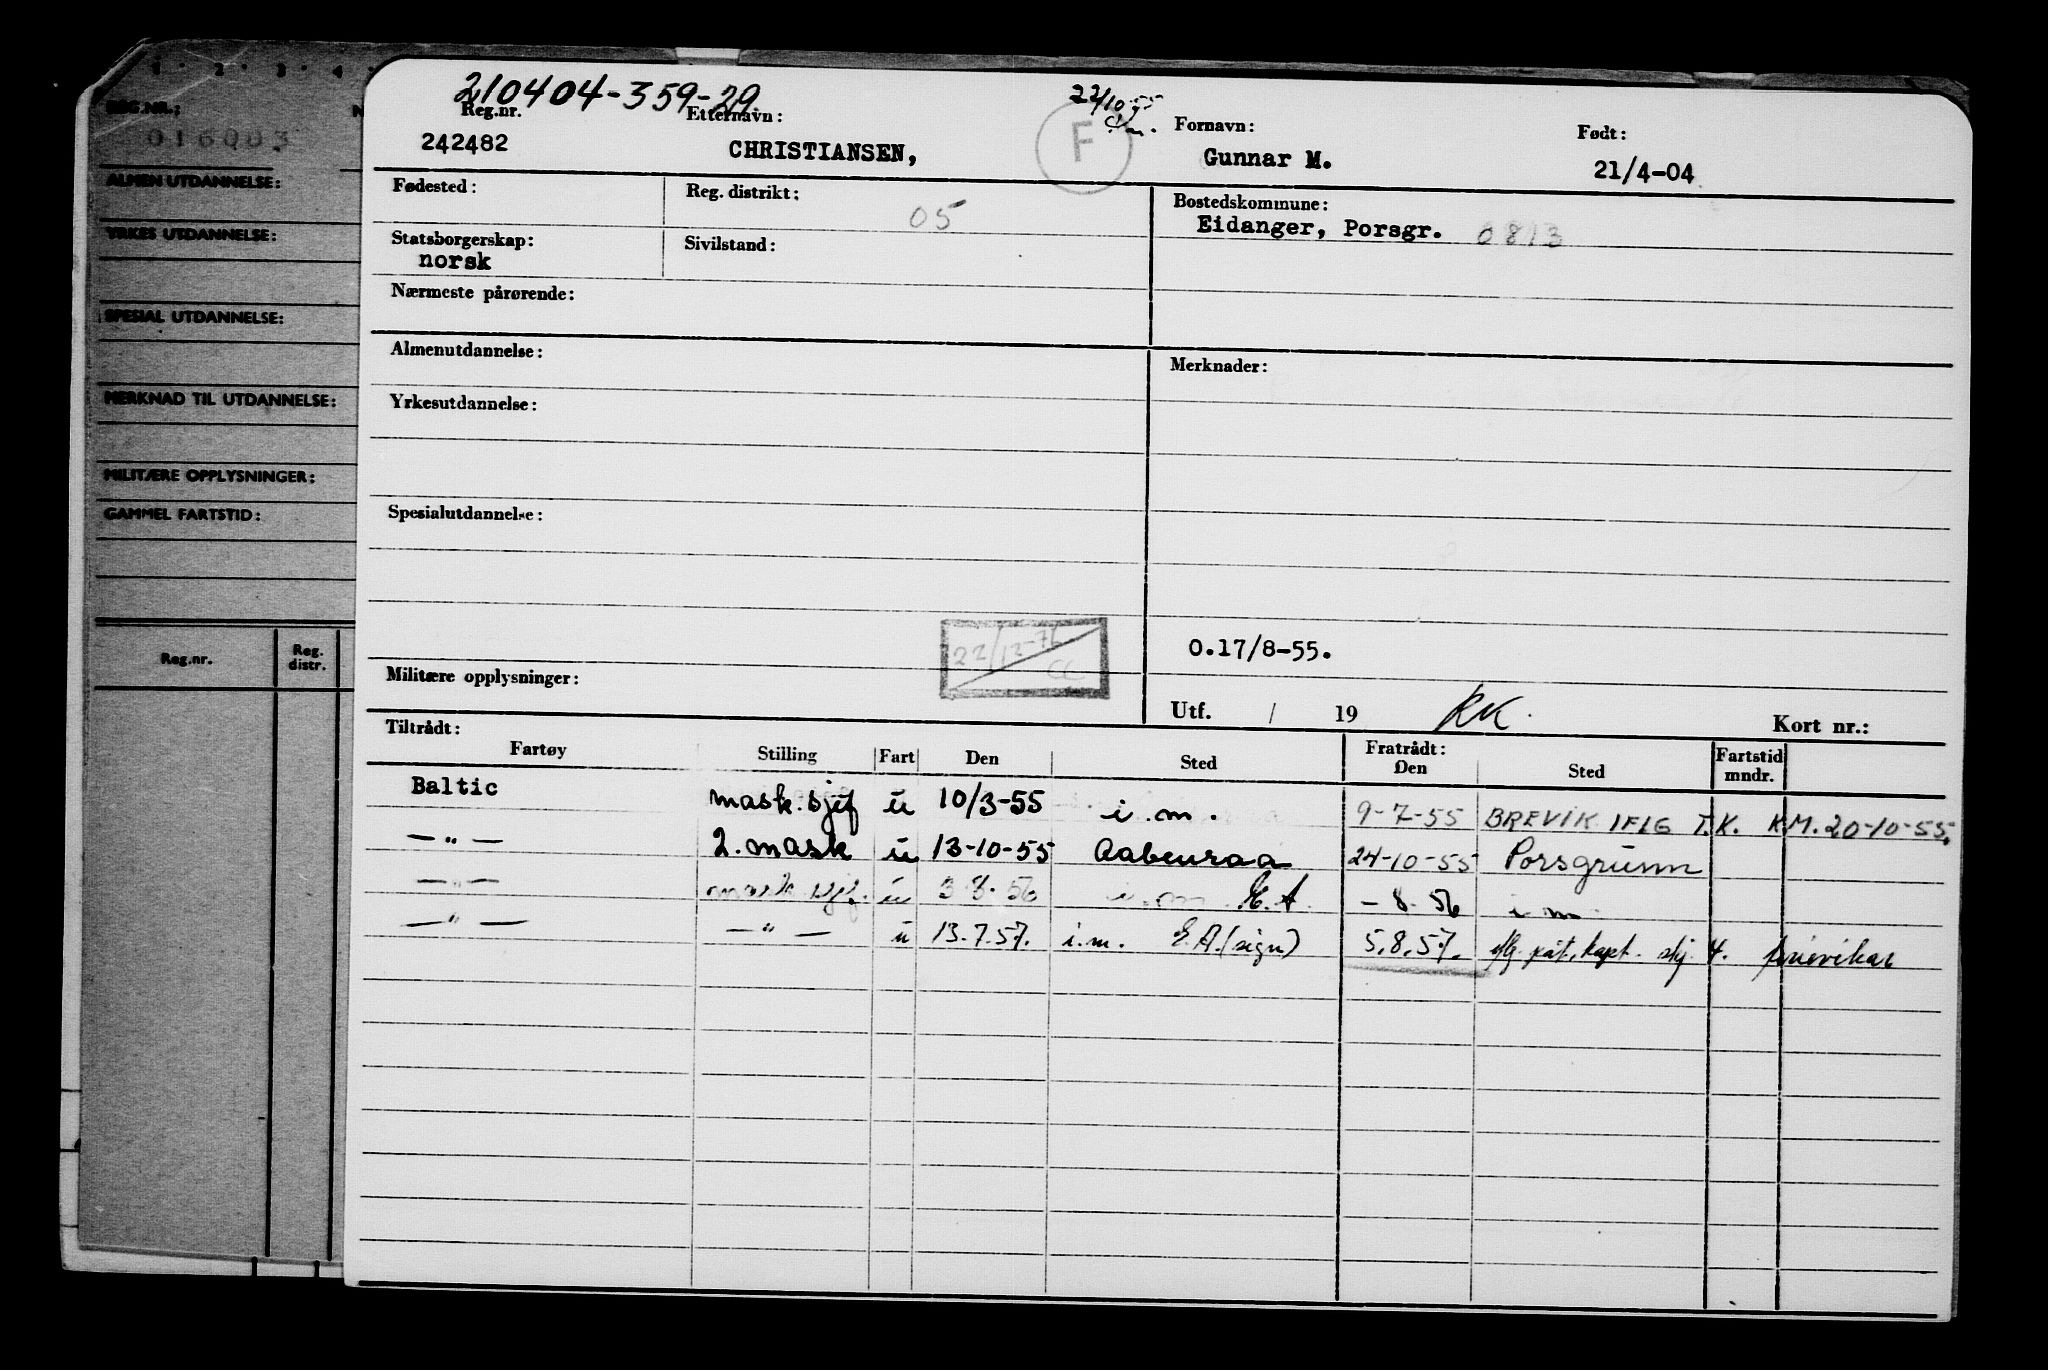 1 · 2 · 3 · 4 ·
REG.NR.:
016003
ALMEN UTDANNELSE:
YRKES UTDANNELSE:
SPESIAL UTDANNELSE:
MERKNAD TIL UTDANNELSE:
MILITÆRE OPPLYSNINGER:
GAMMEL FARTSTID:
Reg.nr. Reg. distr.
210404-359-29
22/10-55
Reg.nr. Etternavn: F Fornavn: Født:
242482 CHRISTIANSEN, Gunnar M. 21/4-04
Fødested: Reg. distrikt: 05 Bostedskommune:
Eidanger, Porsgr. 0813
Statsborgerskap: Sivilstand:
norsk
Nærmeste pårørende:
Almenutdannelse: Merknader:
Yrkesutdannelse:
Spesialutdannelse:
22/12-76
CC
O.17/8-55.
Militære opplysninger:
Utf. / 19 KK. Kort nr.:
Tiltrådt: Fratrådt:
Fartøy Stilling Fart Den Sted Den Sted Fartstid mndr.
Baltic mask.sjef u 10/3-55 i.m. 9-7-55 BREVIK IFLG T.K. KM. 20-10-55.
—"— 2. mask u 13-10-55 Aabenraa 24-10-55 Porsgrunn
—"— mask sjef. u 3 8. 56 i.m. E.A. - 8. 56 i m.
—"— —"— u 13.7.57. i.m. E.A. (sign) 5.8.57. kapt. 4. ferievikar